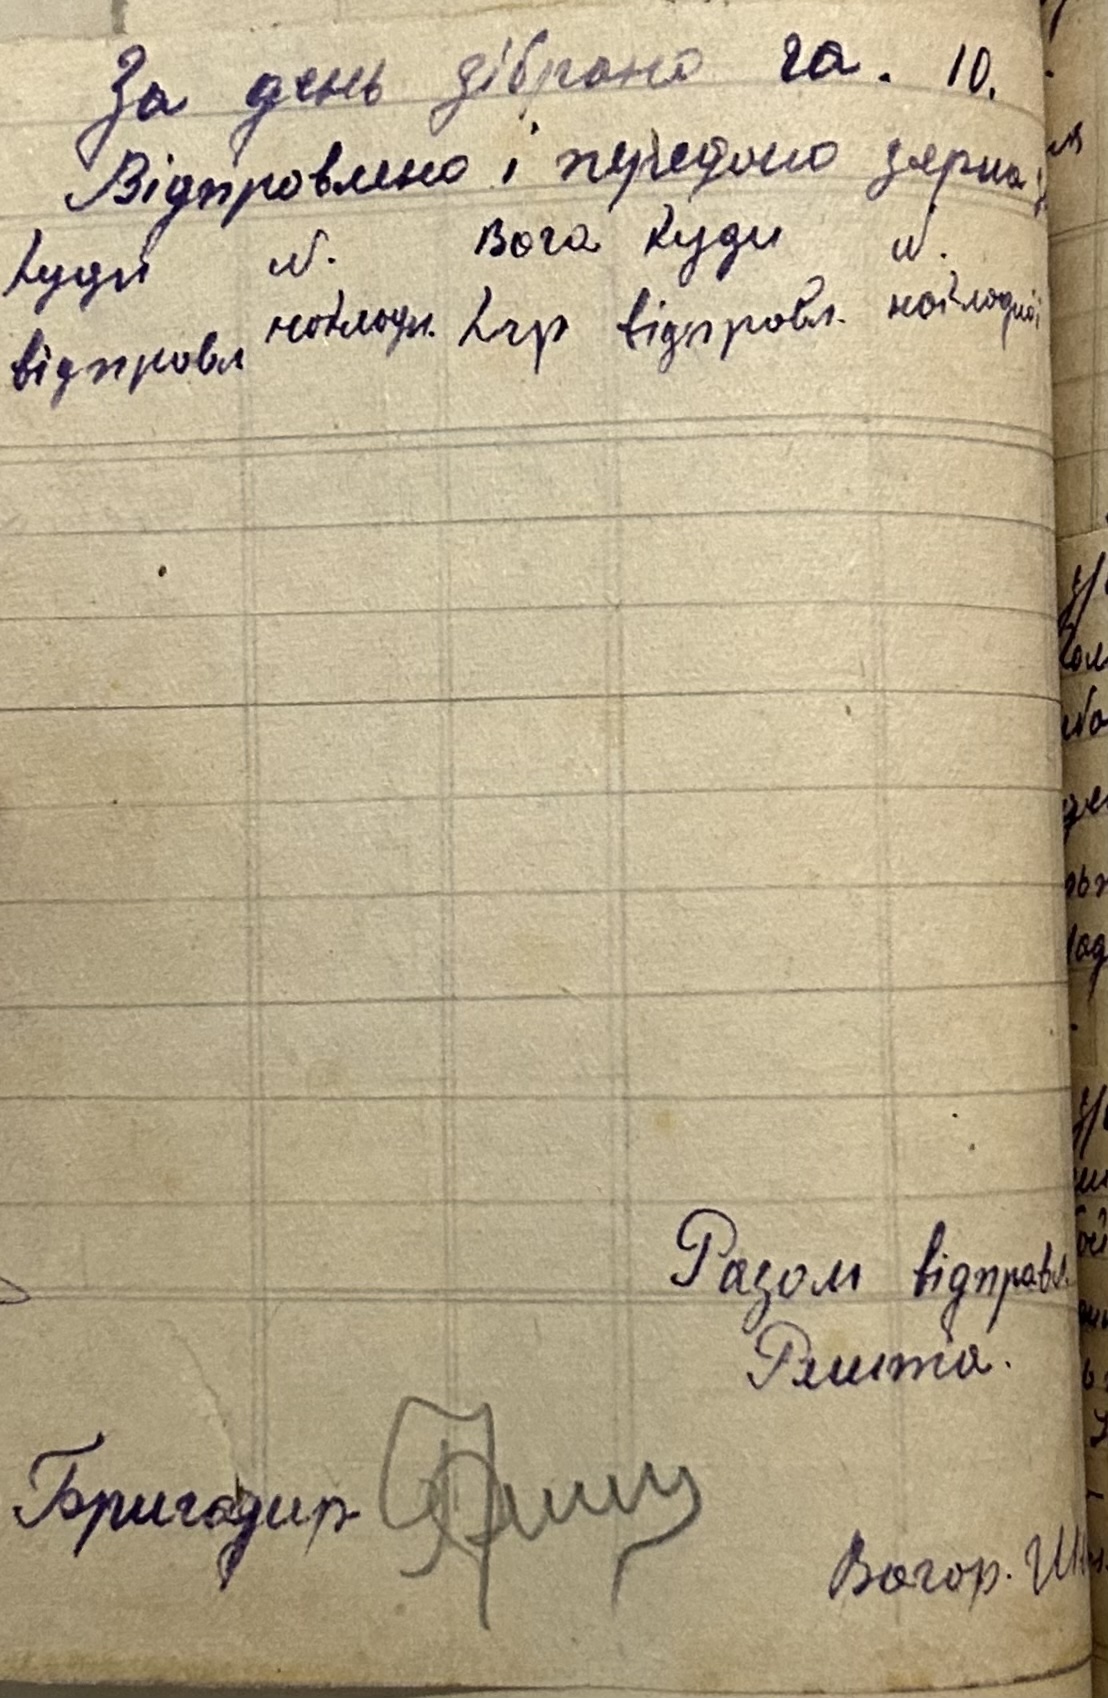 За день зібрано га. 10.
Відправлено і передано зерна
Куди N. Вага Куди N.
відправл накладн. Кгр відправл. накладної
Разом відправл.
Решта.
Бригадир
Вагар.